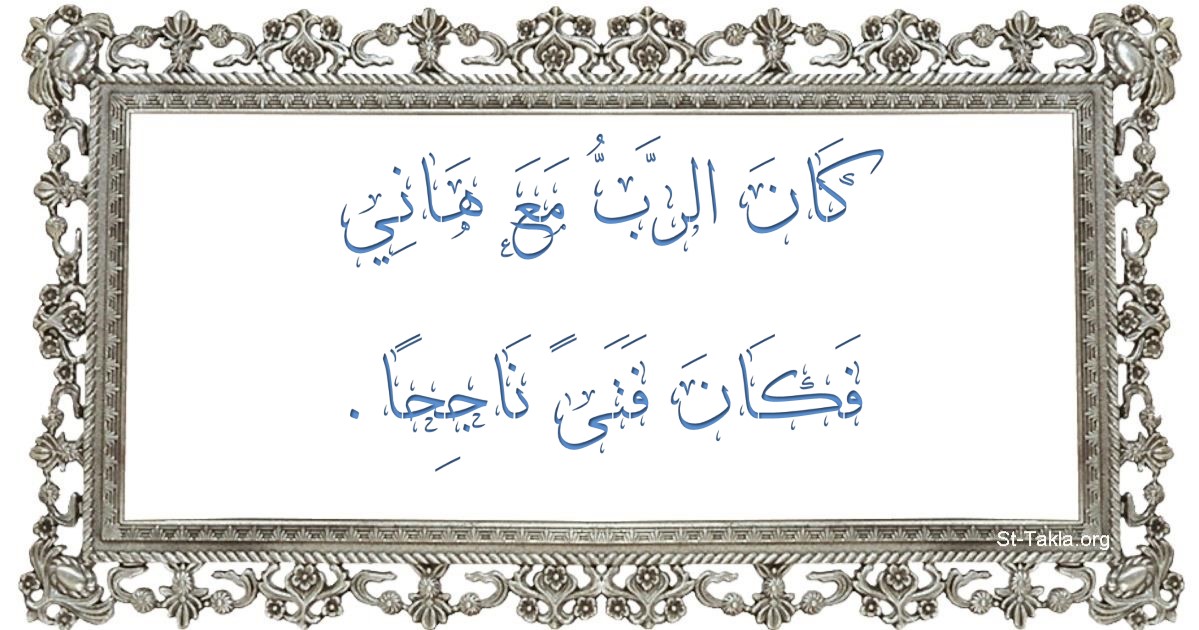 كَانَ الرَّبُّ مَعَ هَانِي
فَكَانَ فَتَىً نَاجِحًا .
St-Takla.org